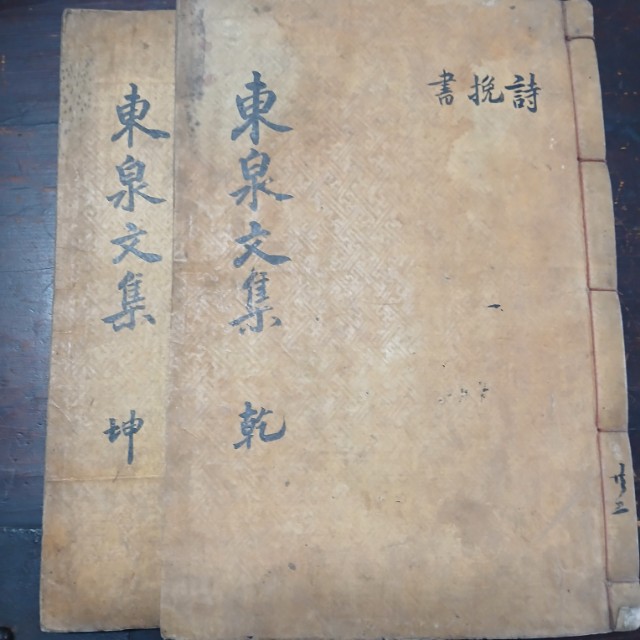 詩挽書
東泉文集 乾
東泉文集 坤
共二